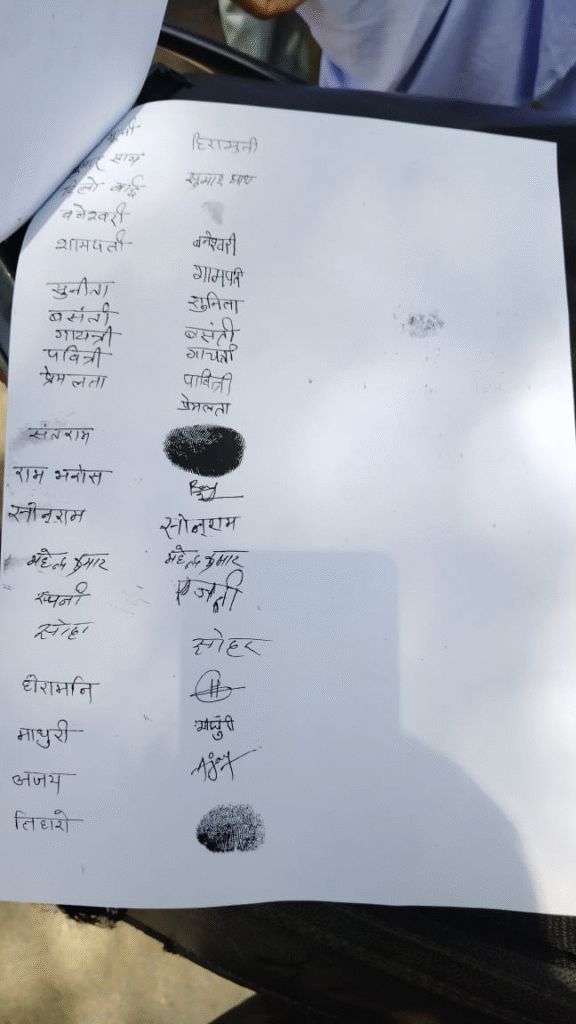 हिरामुनी
कुमार साय सुमार साय
बाई
बनेश्वरी बनेश्वरी
शामपती गामपति
सुनीता सुनिता
बसंती बसंती
गायत्री गायत्री
पवित्री पवित्री
प्रेमलता प्रेमलता
संतराम
राम भरोस
सोनूराम सोनूराम
महेन्द्र कुमार महेन्द्र कुमार
सोहर
धीरामनि
माधुरी माधुरी
अजय Ajay
तिहारो